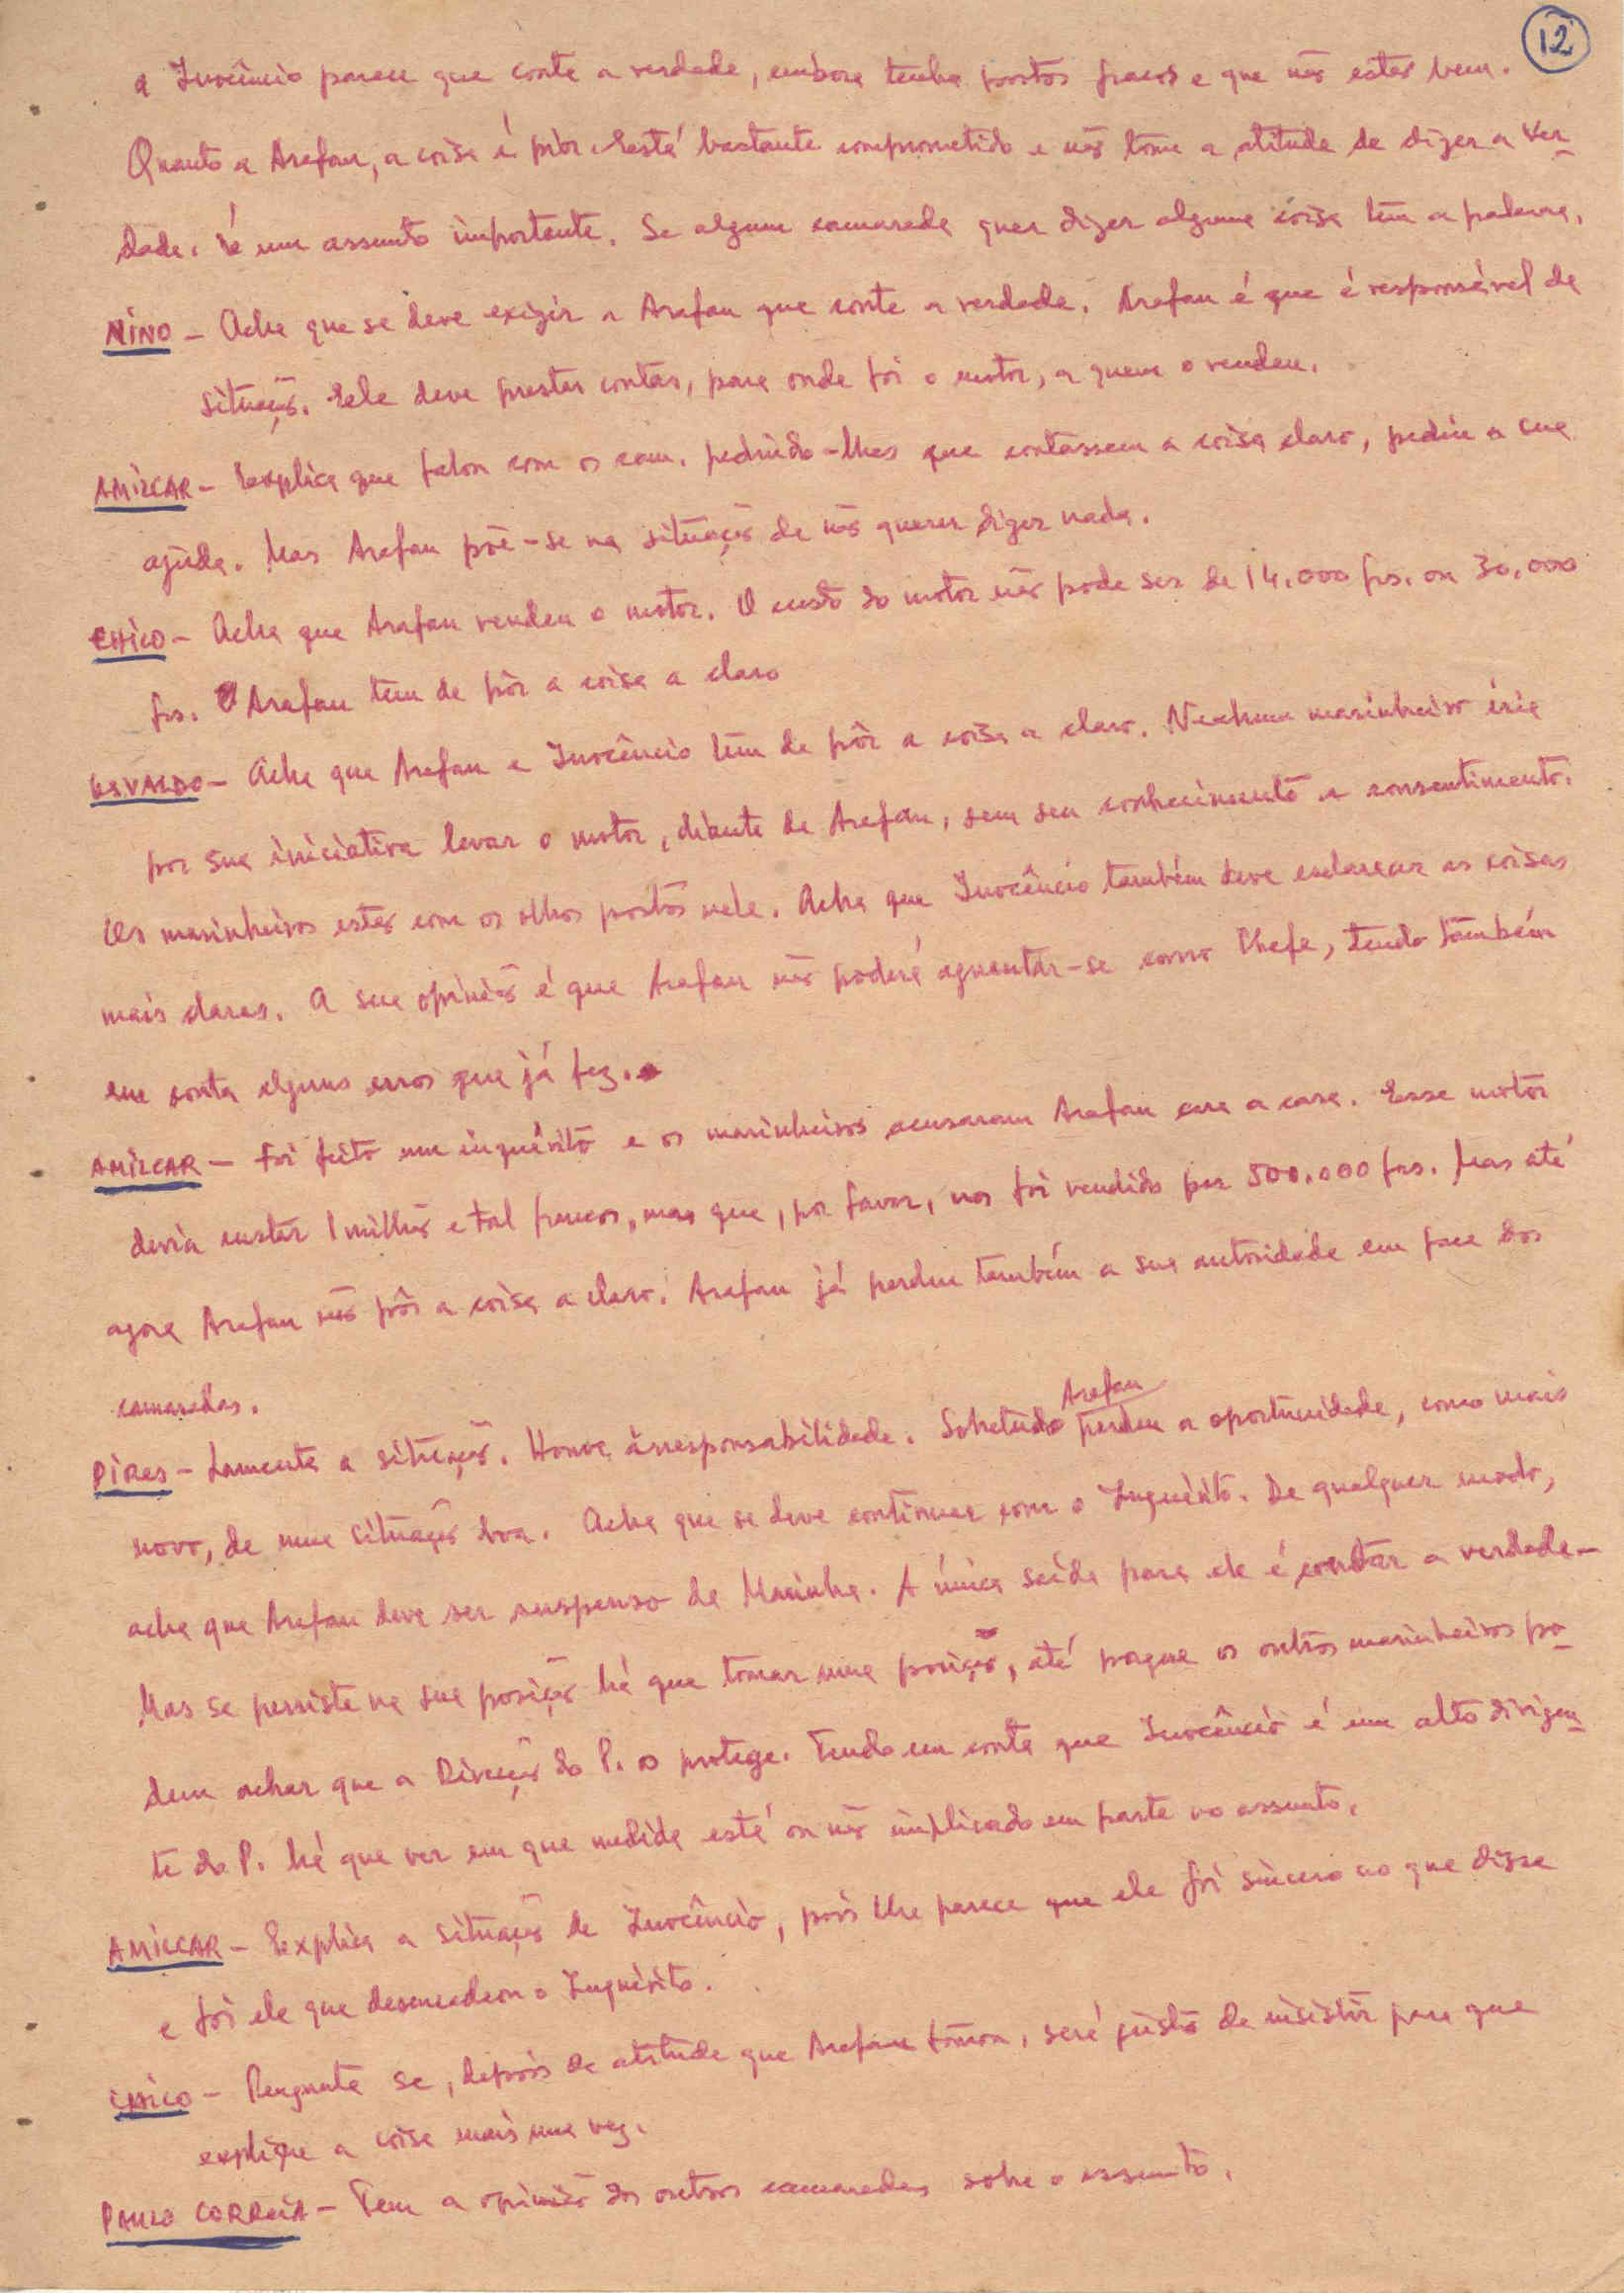 12
a Inocêncio parece que conta a verdade, embora tenha pontos fracos e que não estão bem.
Quanto a Arafan, a coisa é piòr. Está bastante comprometido e não toma a atitude de dizer a ver-
dade. É um assunto importante. Se algum camarada quer dizer alguma coisa tem a palavra.
NINO - Acha que se deve exigir a Arafan que conte a verdade. Arafan é que é responsável da
situação. Ele deve prestar contas, para onde foi o motor, a quem o vendeu.
AMILCAR - Explica que falou com os cam. pedindo-lhes que contassem a coisa claro, pediu a sua
ajuda. Mas Arafan põe-se na situação de não querer dizer nada.
CHICO - Acha que Arafan vendeu o motor. O custo do motor não pode ser de 14.000 frs. ou 30.000
frs. Arafan tem de pôr a coisa a claro
OSVALDO - Acha que Arafan e Inocêncio têm de pôr a coisa a claro. Nenhum marinheiro iria
por sua iniciativa levar o motor, diante de Arafan, sem seu conhecimento e consentimento.
Os marinheiros estão com os olhos postos nele. Acha que Inocêncio também deve esclarecer as coisas
mais claras. A sua opinião é que Arafan não poderá aguentar-se como Chefe, tendo também
em conta alguns erros que já fez.
AMILCAR - Foi feito um inquérito e os marinheiros acusaram Arafan cara a cara. Esse motor
devia custar 1 milhão e tal francos, mas que, por favor, nos foi vendido por 500.000 frs. Mas até
agora Arafan não pôs a coisa a claro. Arafan já perdeu também a sua autoridade em face dos
camaradas.
PIRES - Lamenta a situação. Houve irresponsabilidade. Sobretudo Arafan perdeu a oportunidade, como mais
novo, de uma situação boa. Acha que se deve continuar com o Inquérito. De qualquer modo,
acha que Arafan deve ser suspenso da Marinha. A única saída para ele é contar a verdade-
Mas se persiste na sua posição há que tomar uma posição, até porque os outros marinheiros po-
dem achar que a Direcção do P. os protege. Tendo em conta que Inocêncio é um alto dirigen-
te do P. há que ver em que medida está ou não implicado em parte no assunto.
AMILCAR - Explica a situação de Inocêncio, pois lhe parece que ele foi sincero no que disse
e foi ele que desencadeou o Inquérito.
CHICO - Pergunta se, depois da atitude que Arafan tomou, será justo de insistir para que
explique a coisa mais uma vez.
PAULO CORREIA - Tem a opinião dos outros camaradas sobre o assunto.